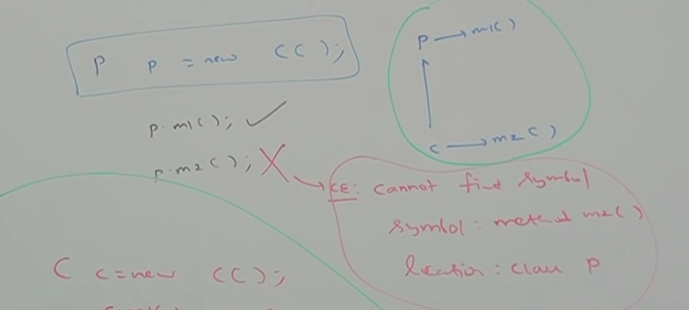 P p = new C();
p.m1(); ✓
p.m2(); X
P → m1()
C → m2()
CE: cannot find symbol
symbol: method m2()
location: class P
C c = new C();